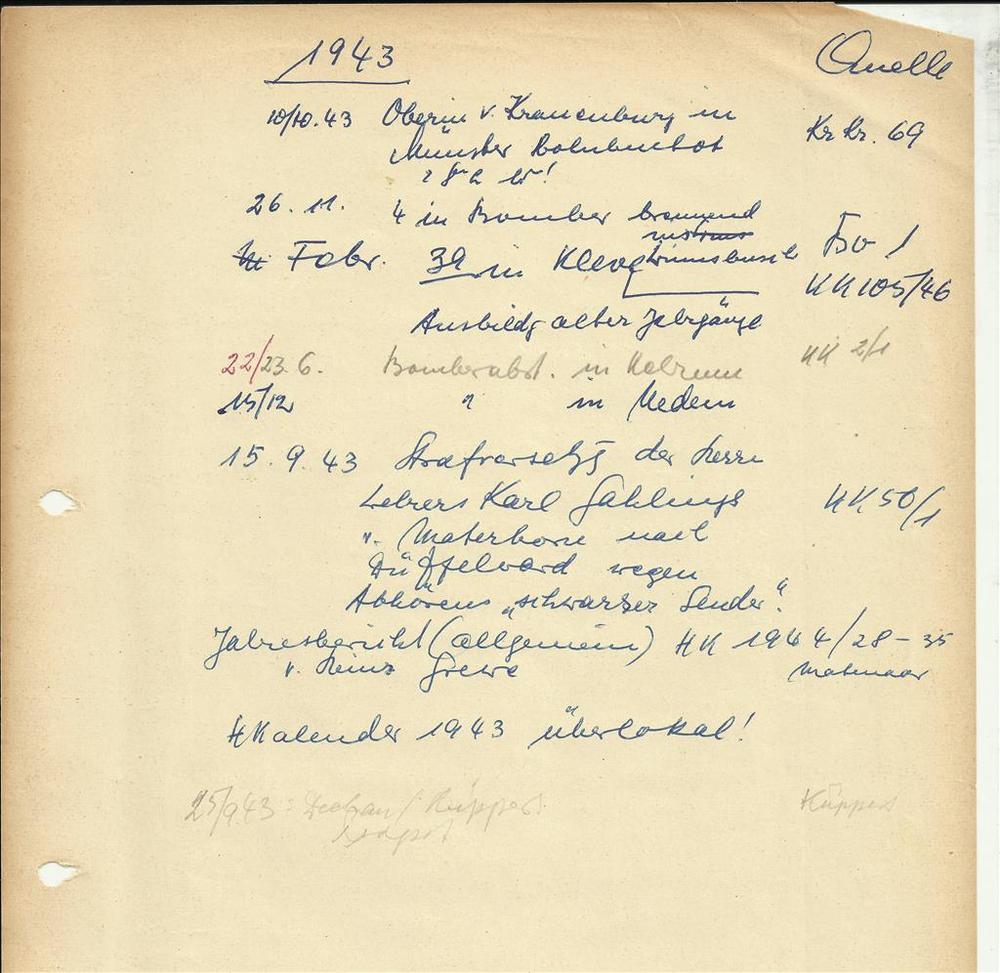 1943 Quelle
10/10.43 Oberin v. Kranenburg in
Münster Bahnhof Kr Kr. 69
26. 11. 4 in Bomber brennend
Febr. 39 in Kleve
KK 105/46
Ausbildg alter Jahrgänge
22/23.6. Bomberabst. in Kehrum KK 2/1
15/12 " in Uedem
15.9.43 Strafversetzg des Herrn
Lehrers Karl Gahlings KK 50/1
v. Materborn nach
Düffelward wegen
Abhörens „schwarzer Sender".
Jahresbericht (allgemein) HK 1944/28-35
v. Heinz Grewe
HKalender 1943 überlokal!
25/9.43: Dechan Küppers Küppers